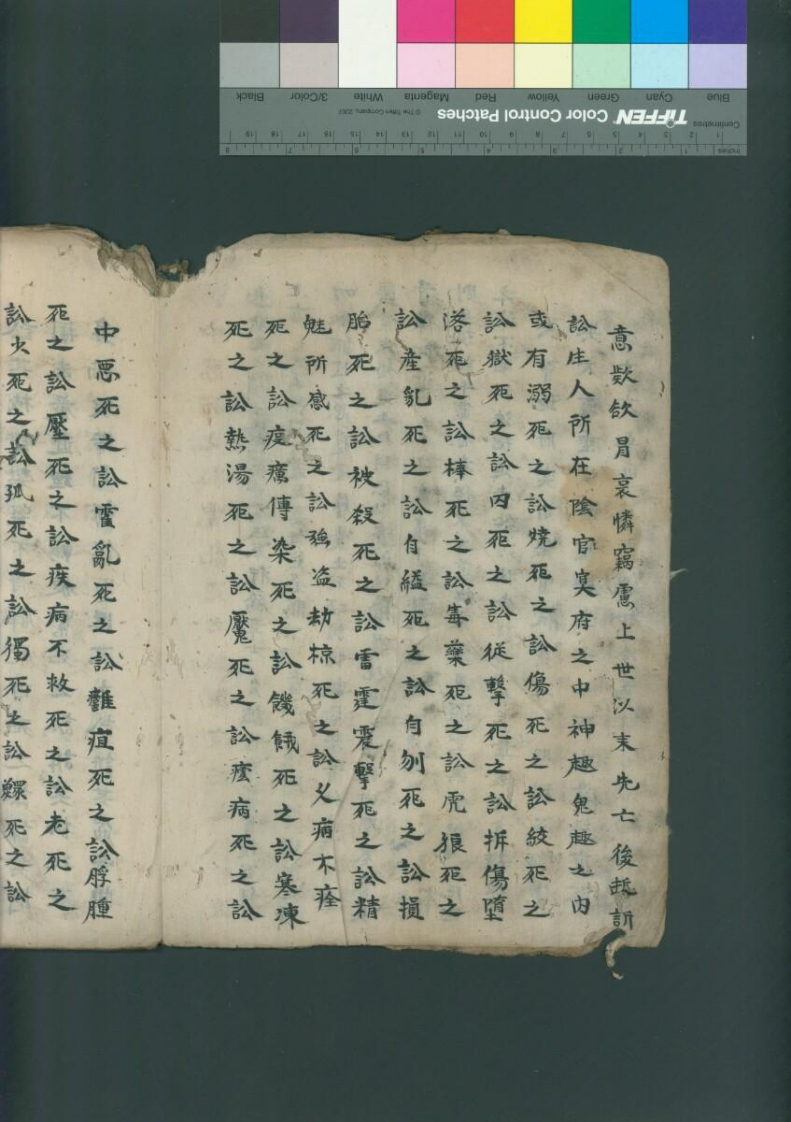 Blue Cyan Green Yellow Red Magenta White 3/Color Black
Centimetres TIFFEN Color Control Patches © The Tiffen Company, 2007
Inches
意欵欲冒哀憐竊慮上世以来先亡後訴
訟生人所在陰官冥府之中神趣鬼趣之内
或有溺死之訟燒死之訟傷死之訟絞死之
訟獄死之訟囚死之訟從擊死之訟折傷墮
落死之訟棒死之訟毒藥死之訟虎狼死之
訟産乱死之訟自縊死之訟自刎死之訟損
胎死之訟被殺死之訟雷霆震擊死之訟精
魅所惑死之訟強盗劫掠死之訟久病不痊
死之訟疫癘傳染死之訟饑餓死之訟寒凍
死之訟熱湯死之訟魘死之訟病死之訟
中悪死之訟霍亂死之訟雜疽死之訟脬腫
死之訟壓死之訟疾病不救死之訟老死之
訟火死之訟孤死之訟獨死之訟鰥死之訟